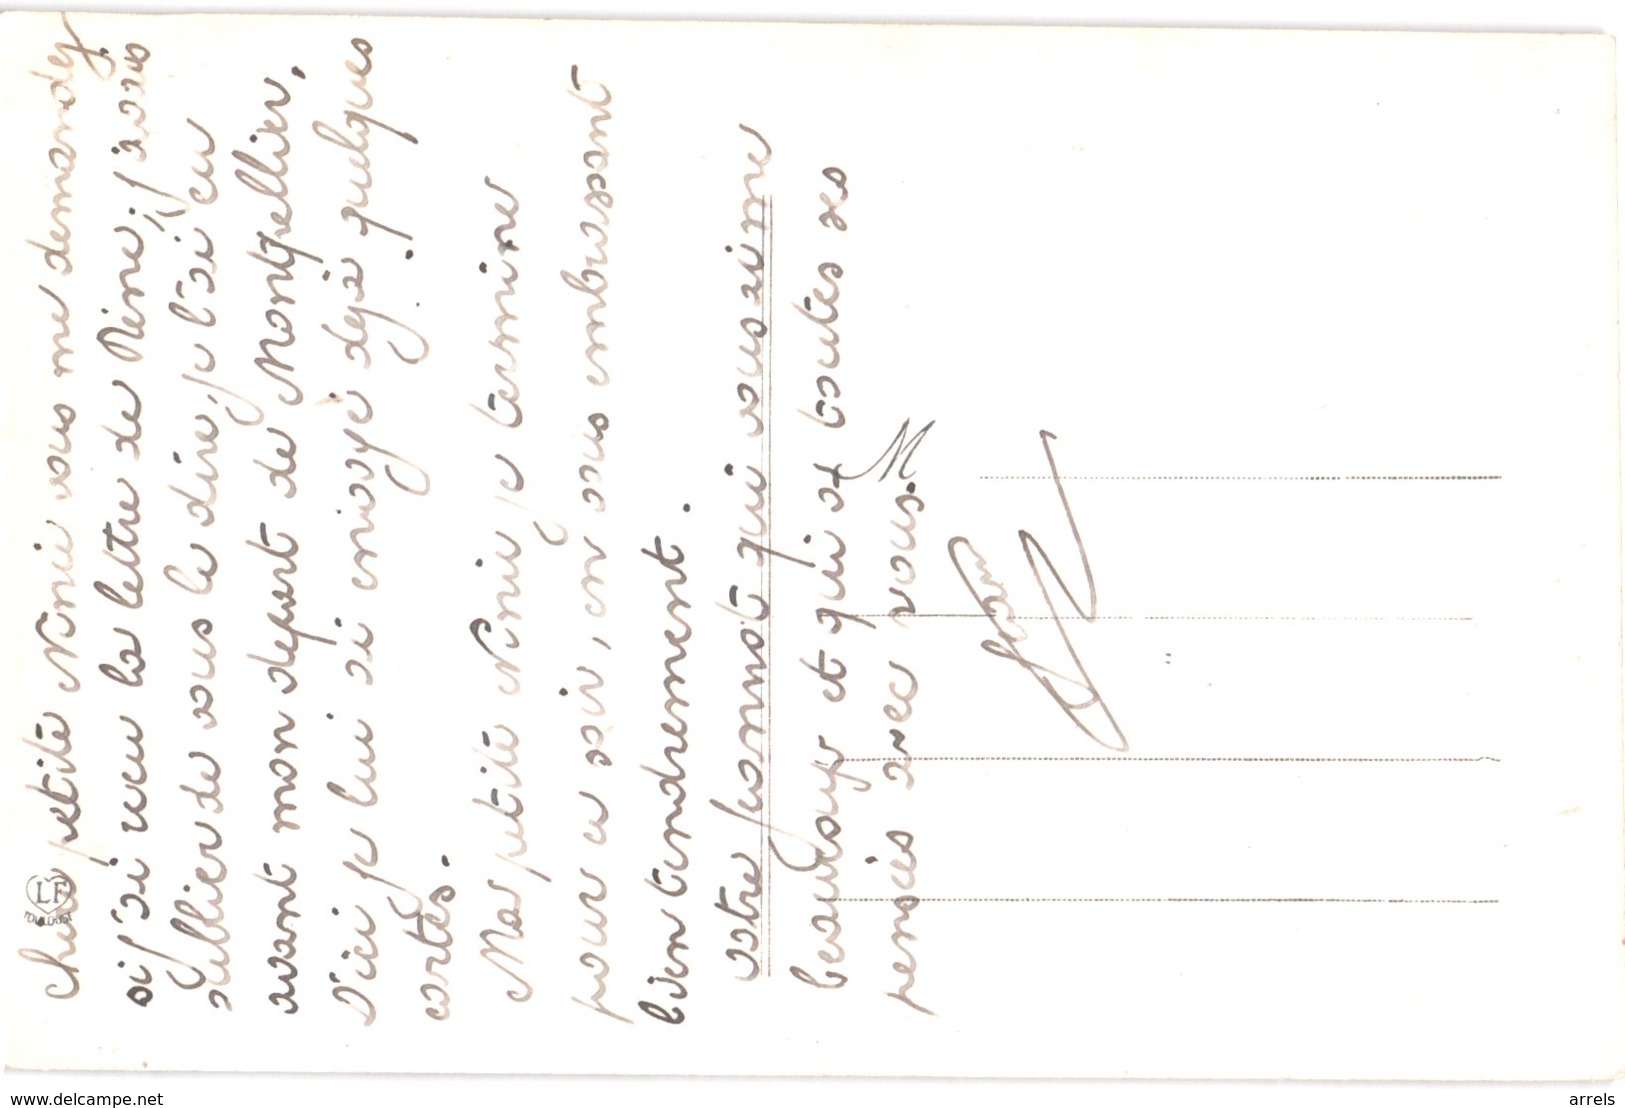 Chère petite Ninie vous me demandez
si j'ai reçu la lettre de Rène; j'avais
oublier de vous le dire, je l'ai eu
avant mon depart de Montpellier,
D'ici je lui ai envoyé dejà quelques
cartes.
Ma petite Ninie je termine
pour ce soir, en vous embrassant
bien tendrement.
votre Jeannot qui vous aime
beaucoup et qui at toutes ses
pensées avec vous.
LF
TOULOUSE
www.delcampe.net
arrels